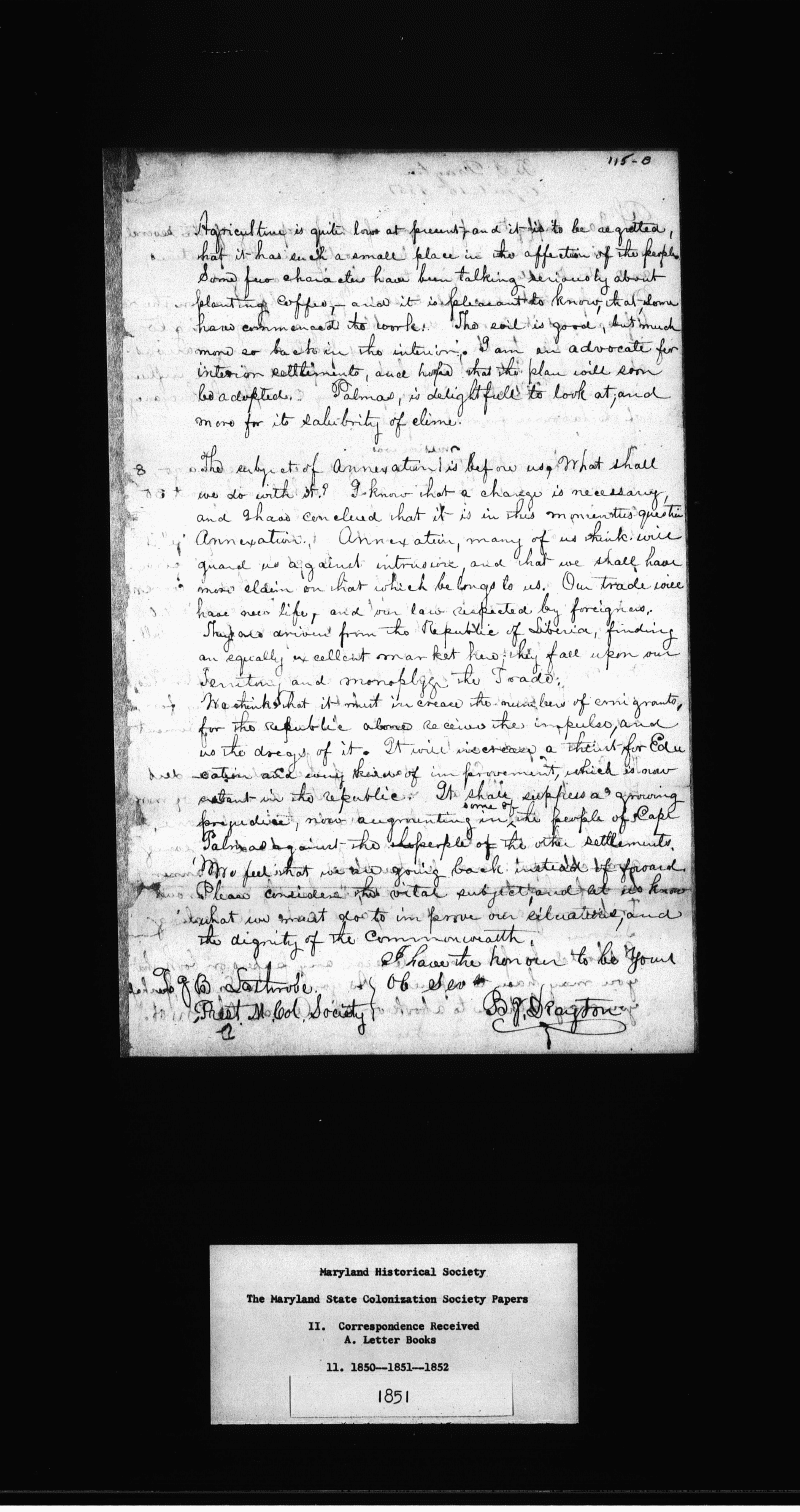 115-B
Agriculture is quite low at present, and it is to be regretted,
that it has such a small place in the affection of the people
Some few character have been talking seriously about
planting coffee,- and it is pleasant to know, that, some
have commenced the work. The soil is good, but much
more so back in the interior. I am an advocate for
interior settlements, and hope that the plan will soon
be adopted. Palmas, is delightfull to look at, and
more for its salubrity of clime.
8
The subject of Annexation is before us, What shall
we do with it? I know that a change is necessary,
and I have conclued that it is in this momentus question
Annexation. Annexation, many of us think will
guard us against intrusion, and that we shall have
more claim on that which belongs to us. Our trade will
have new life, and our law respected by foreigners.
They are driven from the Republic of Liberia, finding
an equally excellent market here, they fall upon our
Territory and monoplyze the Trade.
We think that it must increase the numbers of emigrants,
for the republic alone receives the impulse, and
us the dregs of it. It will increase a thirst for Edu
cation and every kind of improvement, which is now
extant in the republic. It shall suppress a growing
prejudice, now augmenting in some of the people of Cape
Palmas against the people of the other settlements.
We feel that we are going back instead of forward.
Please considere the vital subject, and let us know
what we must do to improve our situations, and
the dignity of the Commonwealth.
I have the honour to be Your
To J B Lathrobe. Ob Serv
Prest. M. Col. Society
B. J. Drayton
Maryland Historical Society
The Maryland State Colonization Society Papers
II. Correspondence Received
A. Letter Books
11. 1850--1851--1852
1851